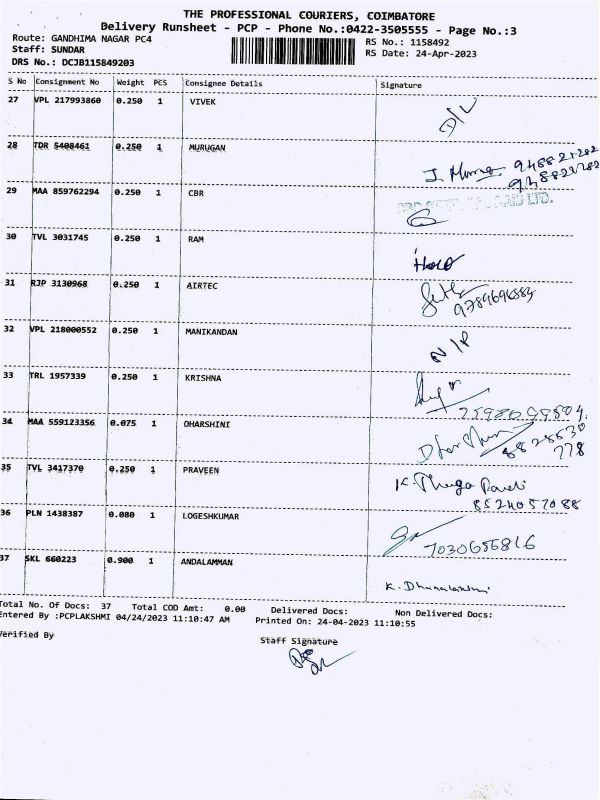 THE PROFESSIONAL COURIERS, COIMBATORE
Delivery Runsheet - PCP - Phone No.:0422-3505555 - Page No.:3
Route: GANDHIMA NAGAR PC4
RS No.: 1158492
Staff: SUNDAR
RS Date: 24-Apr-2023
DRS No.: DCJB115849203
S No Consignment No Weight PCS Consignee Details Signature
27 VPL 217993860 0.250 1 VIVEK D/L
28 TDR 5408461 0.250 1 MURUGAN
29 MAA 859762294 0.250 1 CBR
30 TVL 3031745 0.250 1 RAM
31 RJP 3130968 0.250 1 AIRTEC
32 VPL 218000552 0.250 1 MANIKANDAN N/P
33 TRL 1957339 0.250 1 KRISHNA
34 MAA 559123356 0.075 1 DHARSHINI
35 TVL 3417370 0.250 1 PRAVEEN
8524057088
36 PLN 1438387 0.080 1 LOGESHKUMAR
7030656816
37 SKL 660223 0.900 1 ANDALAMMAN
K. Dhanalakshmi
Total No. Of Docs: 37 Total COD Amt: 0.00 Delivered Docs: Non Delivered Docs:
Entered By :PCPLAKSHMI 04/24/2023 11:10:47 AM Printed On: 24-04-2023 11:10:55
Verified By
Staff Signature